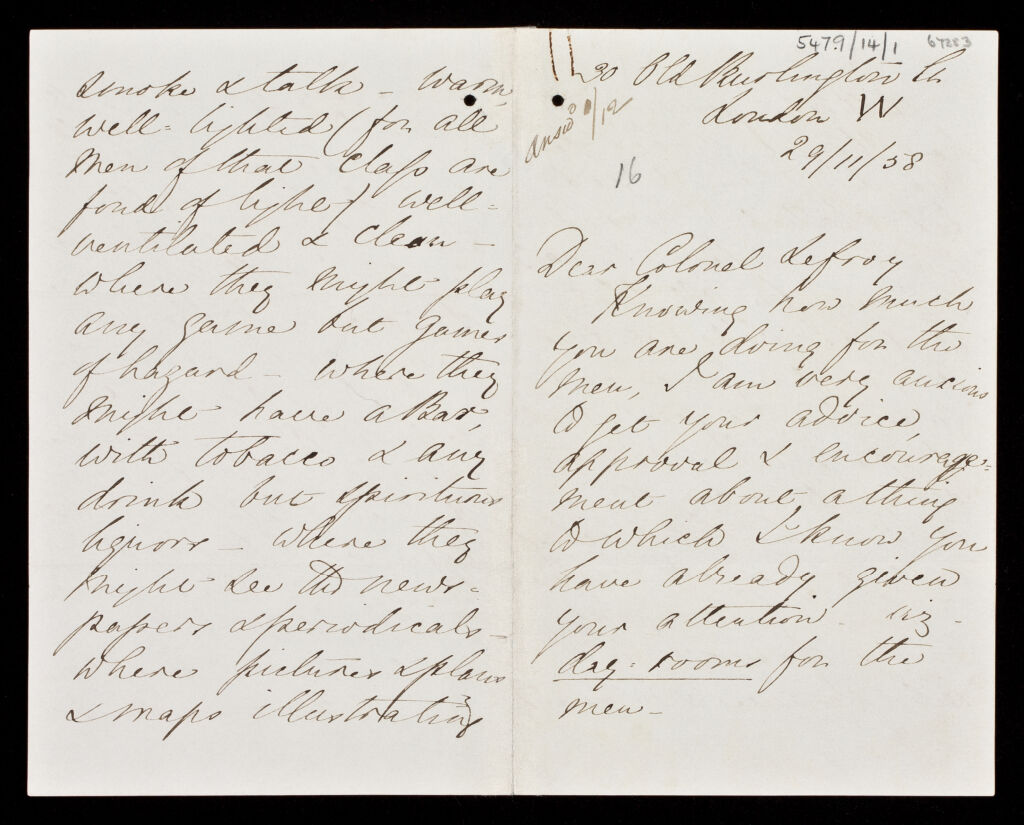 5479/14/1
67283
30 Old Burlington St
London W
29/11/58
Answd 1/12
16
Dear Colonel Lefroy
Knowing how much
you are doing for the
men, I am very anxious
to get your advice,
approval & encourage-
ment about a thing
to which I know you
have already given
your attention - viz -
day-rooms for the
men -
smoke & talk - warm,
well-lighted (for all
men of that class are
fond of light) well-
ventilated & clean -
where they might play
any game but games
of hazard - where they
might have a Bar,
with tobacco & any
drink but spirituous
liquors - where they
might see the news-
papers & periodicals -
where pictures & plans
& maps illustrating